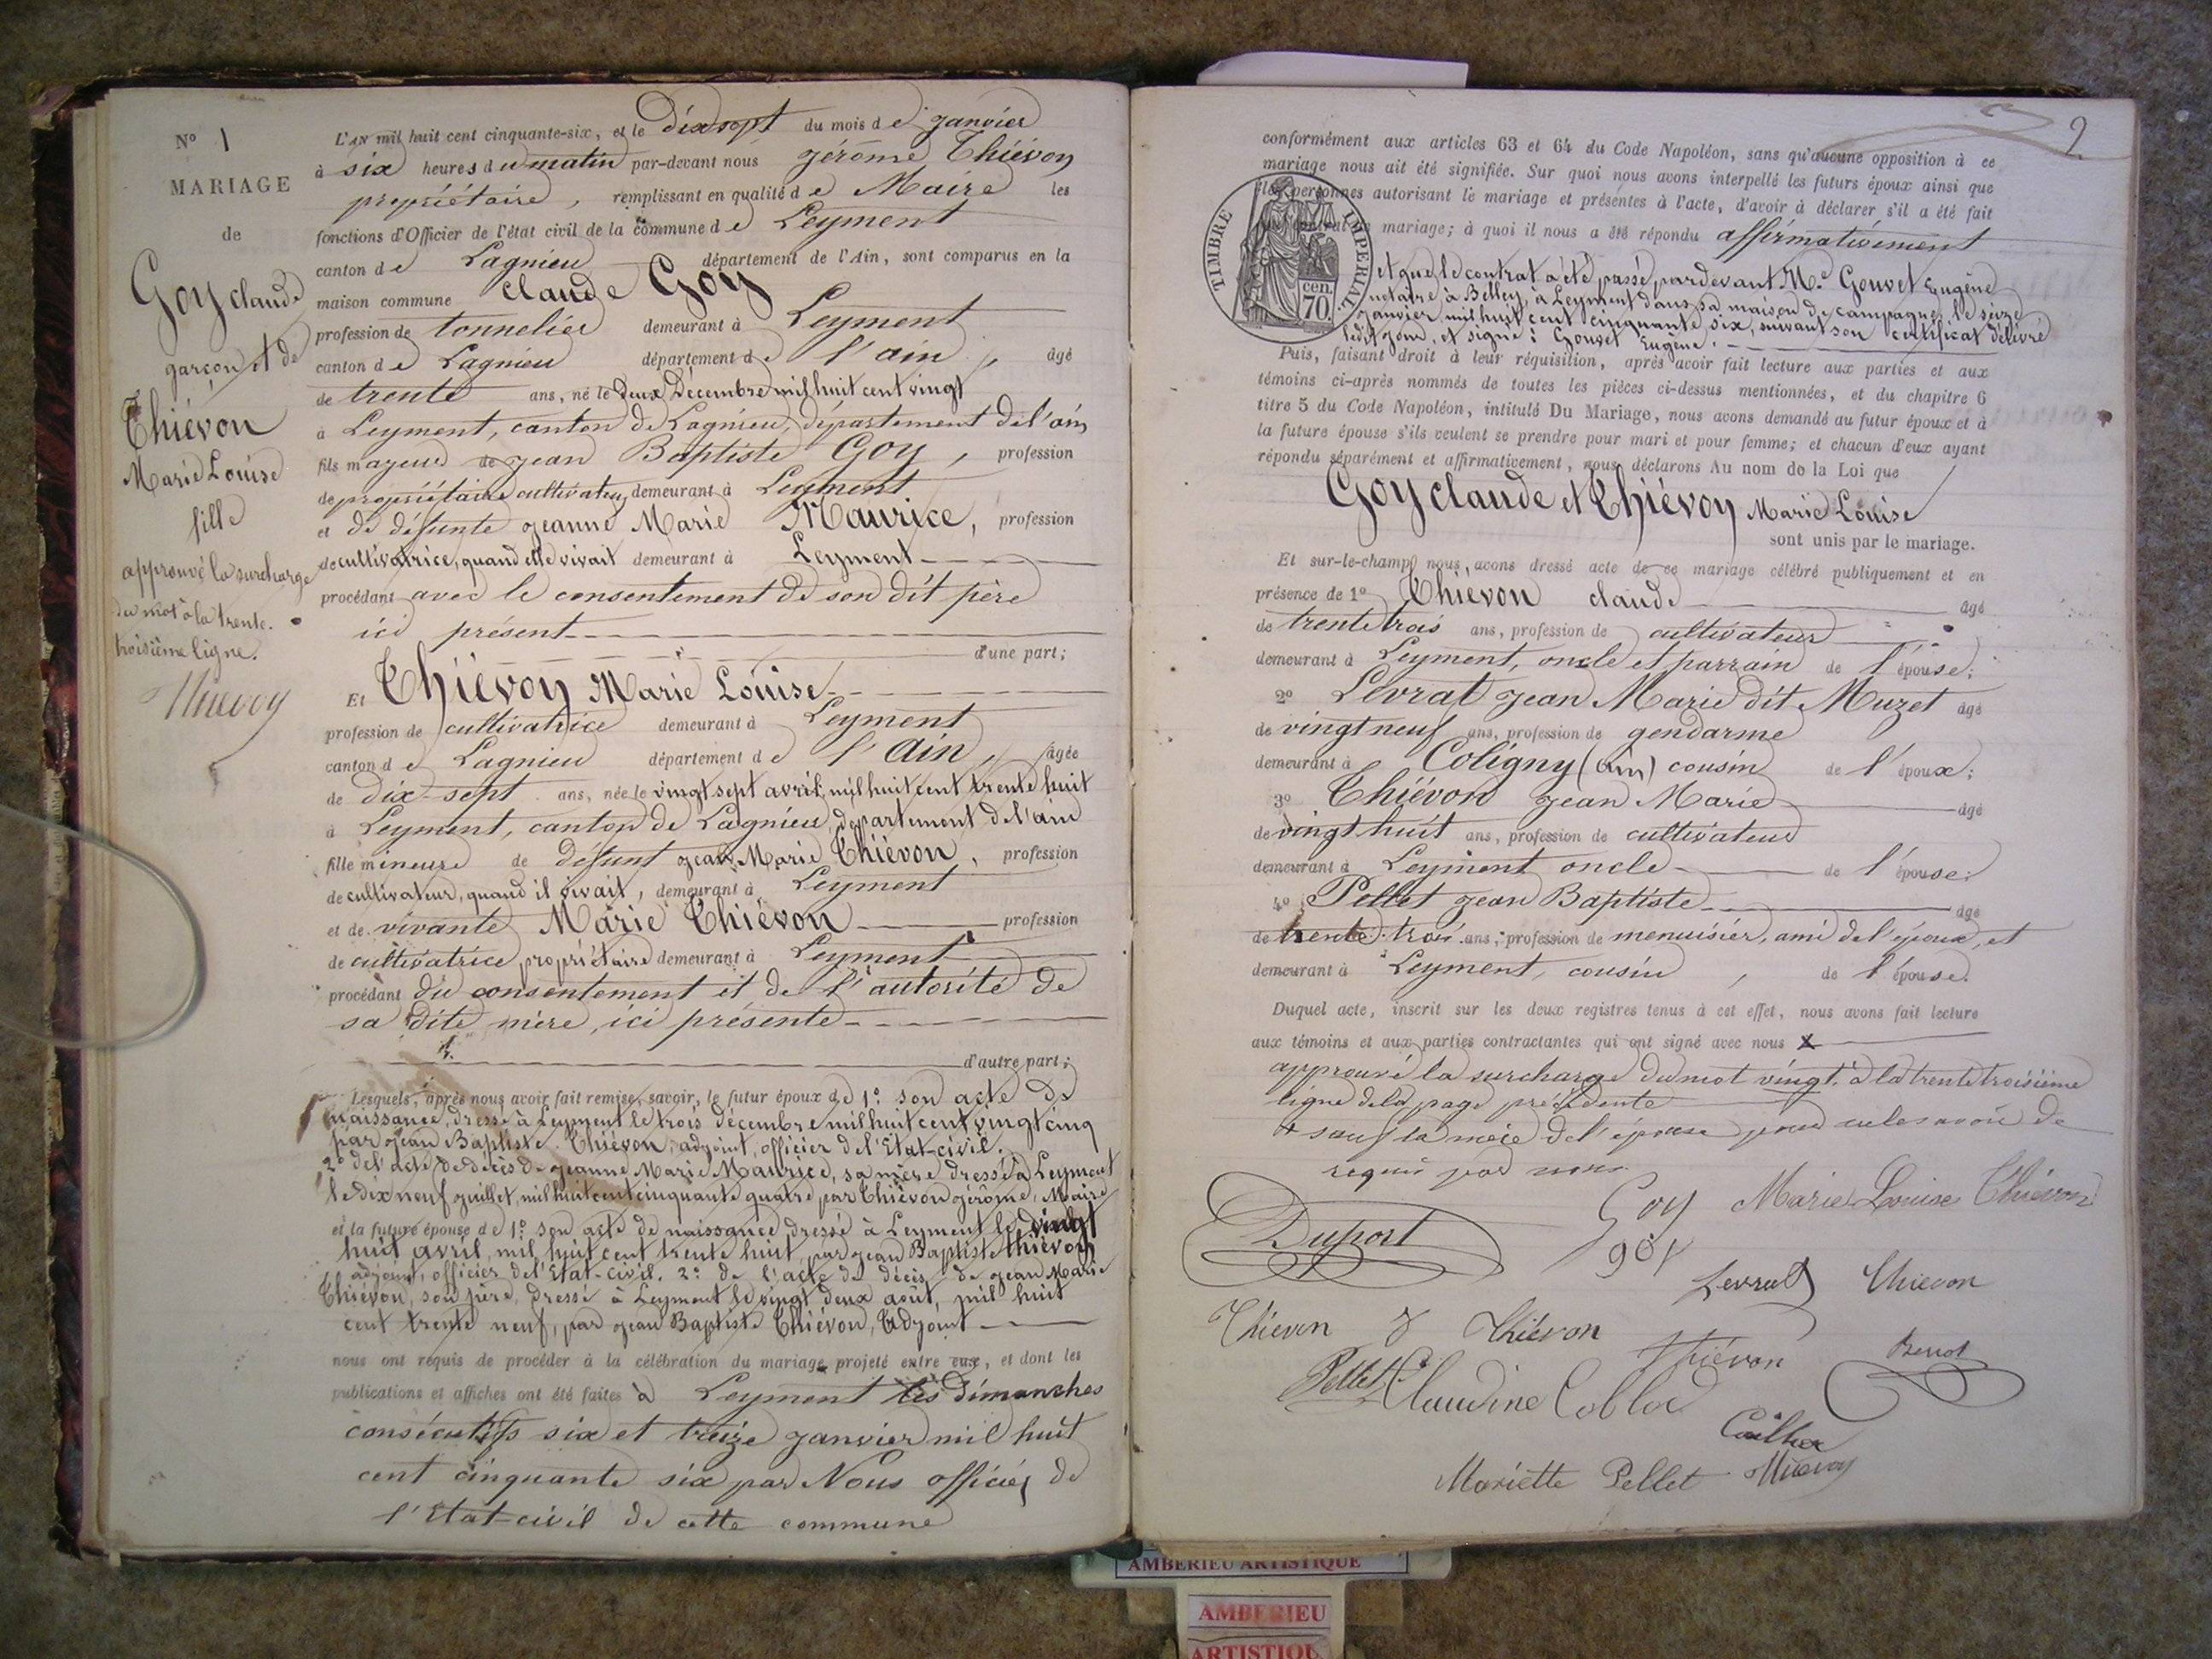 N° 1
MARIAGE
de
Goy claude
garçon et de
Thiévon
Marie Louise
fille
approuvé la surcharge
du mot à la trente-
troisième ligne.
Thiévon
L'AN mil huit cent cinquante-six, et le dix sept du mois de janvier
à six heures du matin par-devant nous jérôme Thiévon
propriétaire, remplissant en qualité de Maire les
fonctions d'Officier de l'état civil de la commune de Leyment
canton de Lagnieu département de l'Ain, sont comparus en la
maison commune claude Goy
profession de tonnelier demeurant à Leyment
canton de Lagnieu département de l'ain, âgé
de trente ans, né le deux Décembre mil huit cent vingt
à Leyment, canton de Lagnieu, département de l'ain
fils majeur de jean Baptiste Goy, profession
de propriétaire cultivateur demeurant à Leyment
et de défunte jeanne Marie Maurice, profession
de cultivatrice, quand elle vivait demeurant à Leyment
procédant avec le consentement de son dit père
ici présent
d'une part;
Et Thiévon Marie Louise
profession de cultivatrice demeurant à Leyment
canton de Lagnieu département de l'Ain, âgée
de dix-sept ans, née le vingt sept avril mil huit cent trente huit
à Leyment, canton de Lagnieu, département de l'ain
fille mineure de défunt jean Marie Thiévon, profession
de cultivateur, quand il vivait, demeurant à Leyment
et de vivante Marie Thiévon profession
de cultivatrice propriétaire demeurant à Leyment
procédant du consentement et de l'autorité de
sa dite mère, ici présente
d'autre part;
Lesquels, après nous avoir fait remise, savoir, le futur époux de 1° son acte de
naissance, dressé à Leyment le trois décembre mil huit cent vingt cinq
par jean Baptiste Thiévon, adjoint, officier de l'Etat-civil.
2° de l'acte de décès de jeanne Marie Maurice, sa mère dressé à Leyment
le dix neuf juillet, mil huit cent cinquante quatre par Thiévon jérôme, Maire
et la future épouse de 1° son acte de naissance dressé à Leyment le vingt
huit avril, mil huit cent trente huit, par jean Baptiste thiévon
adjoint, officier de l'Etat-civil. 2° de l'acte de décès de jean Marie
Thiévon, son père, dressé à Leyment le vingt deux août, mil huit
cent trente neuf, par jean Baptiste Thiévon, Adjoint
nous ont requis de procéder à la célébration du mariage projeté entre eux, et dont les
publications et affiches ont été faites à Leyment les dimanches
consécutifs six et treize janvier mil huit
cent cinquante six par Nous officier de
l'Etat-civil de cette commune
2
conformément aux articles 63 et 64 du Code Napoléon, sans qu'aucune opposition à ce
mariage nous ait été signifiée. Sur quoi nous avons interpellé les futurs époux ainsi que
les personnes autorisant le mariage et présentes à l'acte, d'avoir à déclarer s'il a été fait
contrat de mariage; à quoi il nous a été répondu affirmativement
TIMBRE IMPERIAL
cen. 70
et que le contrat a été passé pardevant Me. Gouvet Eugène
notaire à Belley, à Leyment dans sa maison de campagne, le seize
janvier, mil huit cent cinquante six, suivant son certificat délivré
ledit jour, et signé: Gouvet Eugène.
Puis, faisant droit à leur réquisition, après avoir fait lecture aux parties et aux
témoins ci-après nommés de toutes les pièces ci-dessus mentionnées, et du chapitre 6
titre 5 du Code Napoléon, intitulé Du Mariage, nous avons demandé au futur époux et à
la future épouse s'ils veulent se prendre pour mari et pour femme; et chacun d'eux ayant
répondu séparément et affirmativement, nous déclarons Au nom de la Loi que
Goy claude et Thiévon Marie Louise
sont unis par le mariage.
Et sur-le-champ nous avons dressé acte de ce mariage célébré publiquement et en
présence de 1° Thiévon claude âgé
de trente trois ans, profession de cultivateur
demeurant à Leyment, oncle et parrain de l'épouse;
2° Levrat jean Marie dit Muzet âgé
de vingt neuf ans, profession de gendarme
demeurant à Coligny (ain) cousin de l'époux;
3° Thiévon jean Marie âgé
de vingt huit ans, profession de cultivateur
demeurant à Leyment oncle de l'épouse;
4° Pellet jean Baptiste âgé
de trente trois ans, profession de menuisier, ami de l'époux, et
demeurant à Leyment, cousin, de l'épouse.
Duquel acte, inscrit sur les deux registres tenus à cet effet, nous avons fait lecture
aux témoins et aux parties contractantes qui ont signé avec nous x
approuvé la surcharge du mot vingt, à la trente troisième
ligne de la page précédente
+ sauf la mère de l'épouse pour ne le savoir de
requis par nous
Duport Goy Marie Louise Thiévon
goy
Levrat Thievon
Thievon J Thiévon Thiévon Berrot
Pellet Claudine
Mariette Pellet Thievon
AMBERIEU ARTISTIQUE
AMBERIEU
ARTISTIQU